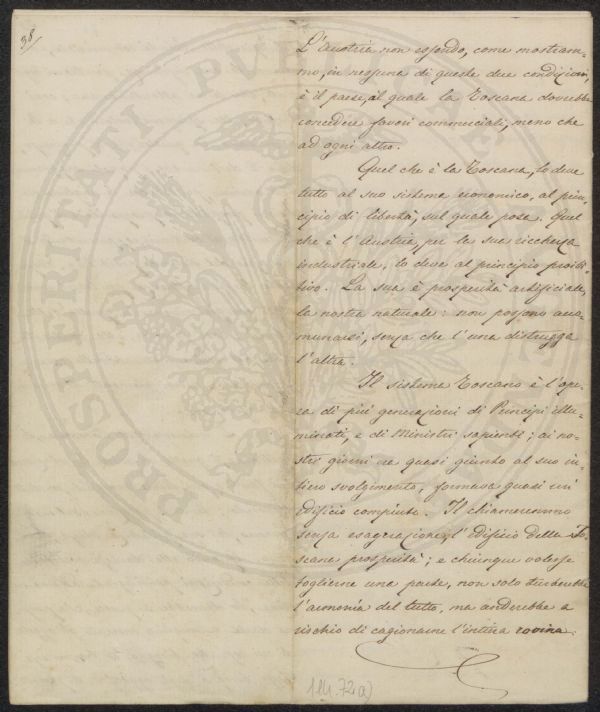 38
L'Austria non essendo, come mostram=
mo, in nessuna di queste due condizioni,
è il paese, al quale la Toscana dovrebbe
concedere favori commerciali, meno che
ad ogni altro.
Quel che è la Toscana, lo deve
tutto al suo sistema economico, al prin=
cipio di libertà, sul quale posa. Quel
che è l'Austria, per la sua ricchezza
industriale, lo deve al principio proibi=
tivo. La sua è prosperità artificiale,
la nostra naturale: non possono acco=
munarsi, senza che l'una distrugga
l'altra.
Il sistema Toscano è l'ope=
ra di più generazioni di Principi illu=
minati, e di Ministri sapienti; ai no=
stri giorni era quasi giunto al suo in=
tiero svolgimento, formava quasi un'
edificio compiuto. Il chiameremmo
senza esagerazione, l'edificio della To=
scana prosperità; e chiunque volesse
toglierne una parte, non solo turberebbe
l'armonia del tutto, ma anderebbe a
rischio di cagionarne l'intera rovina.
PROSPERITATI PVBLICAE
1 M. 72 a)